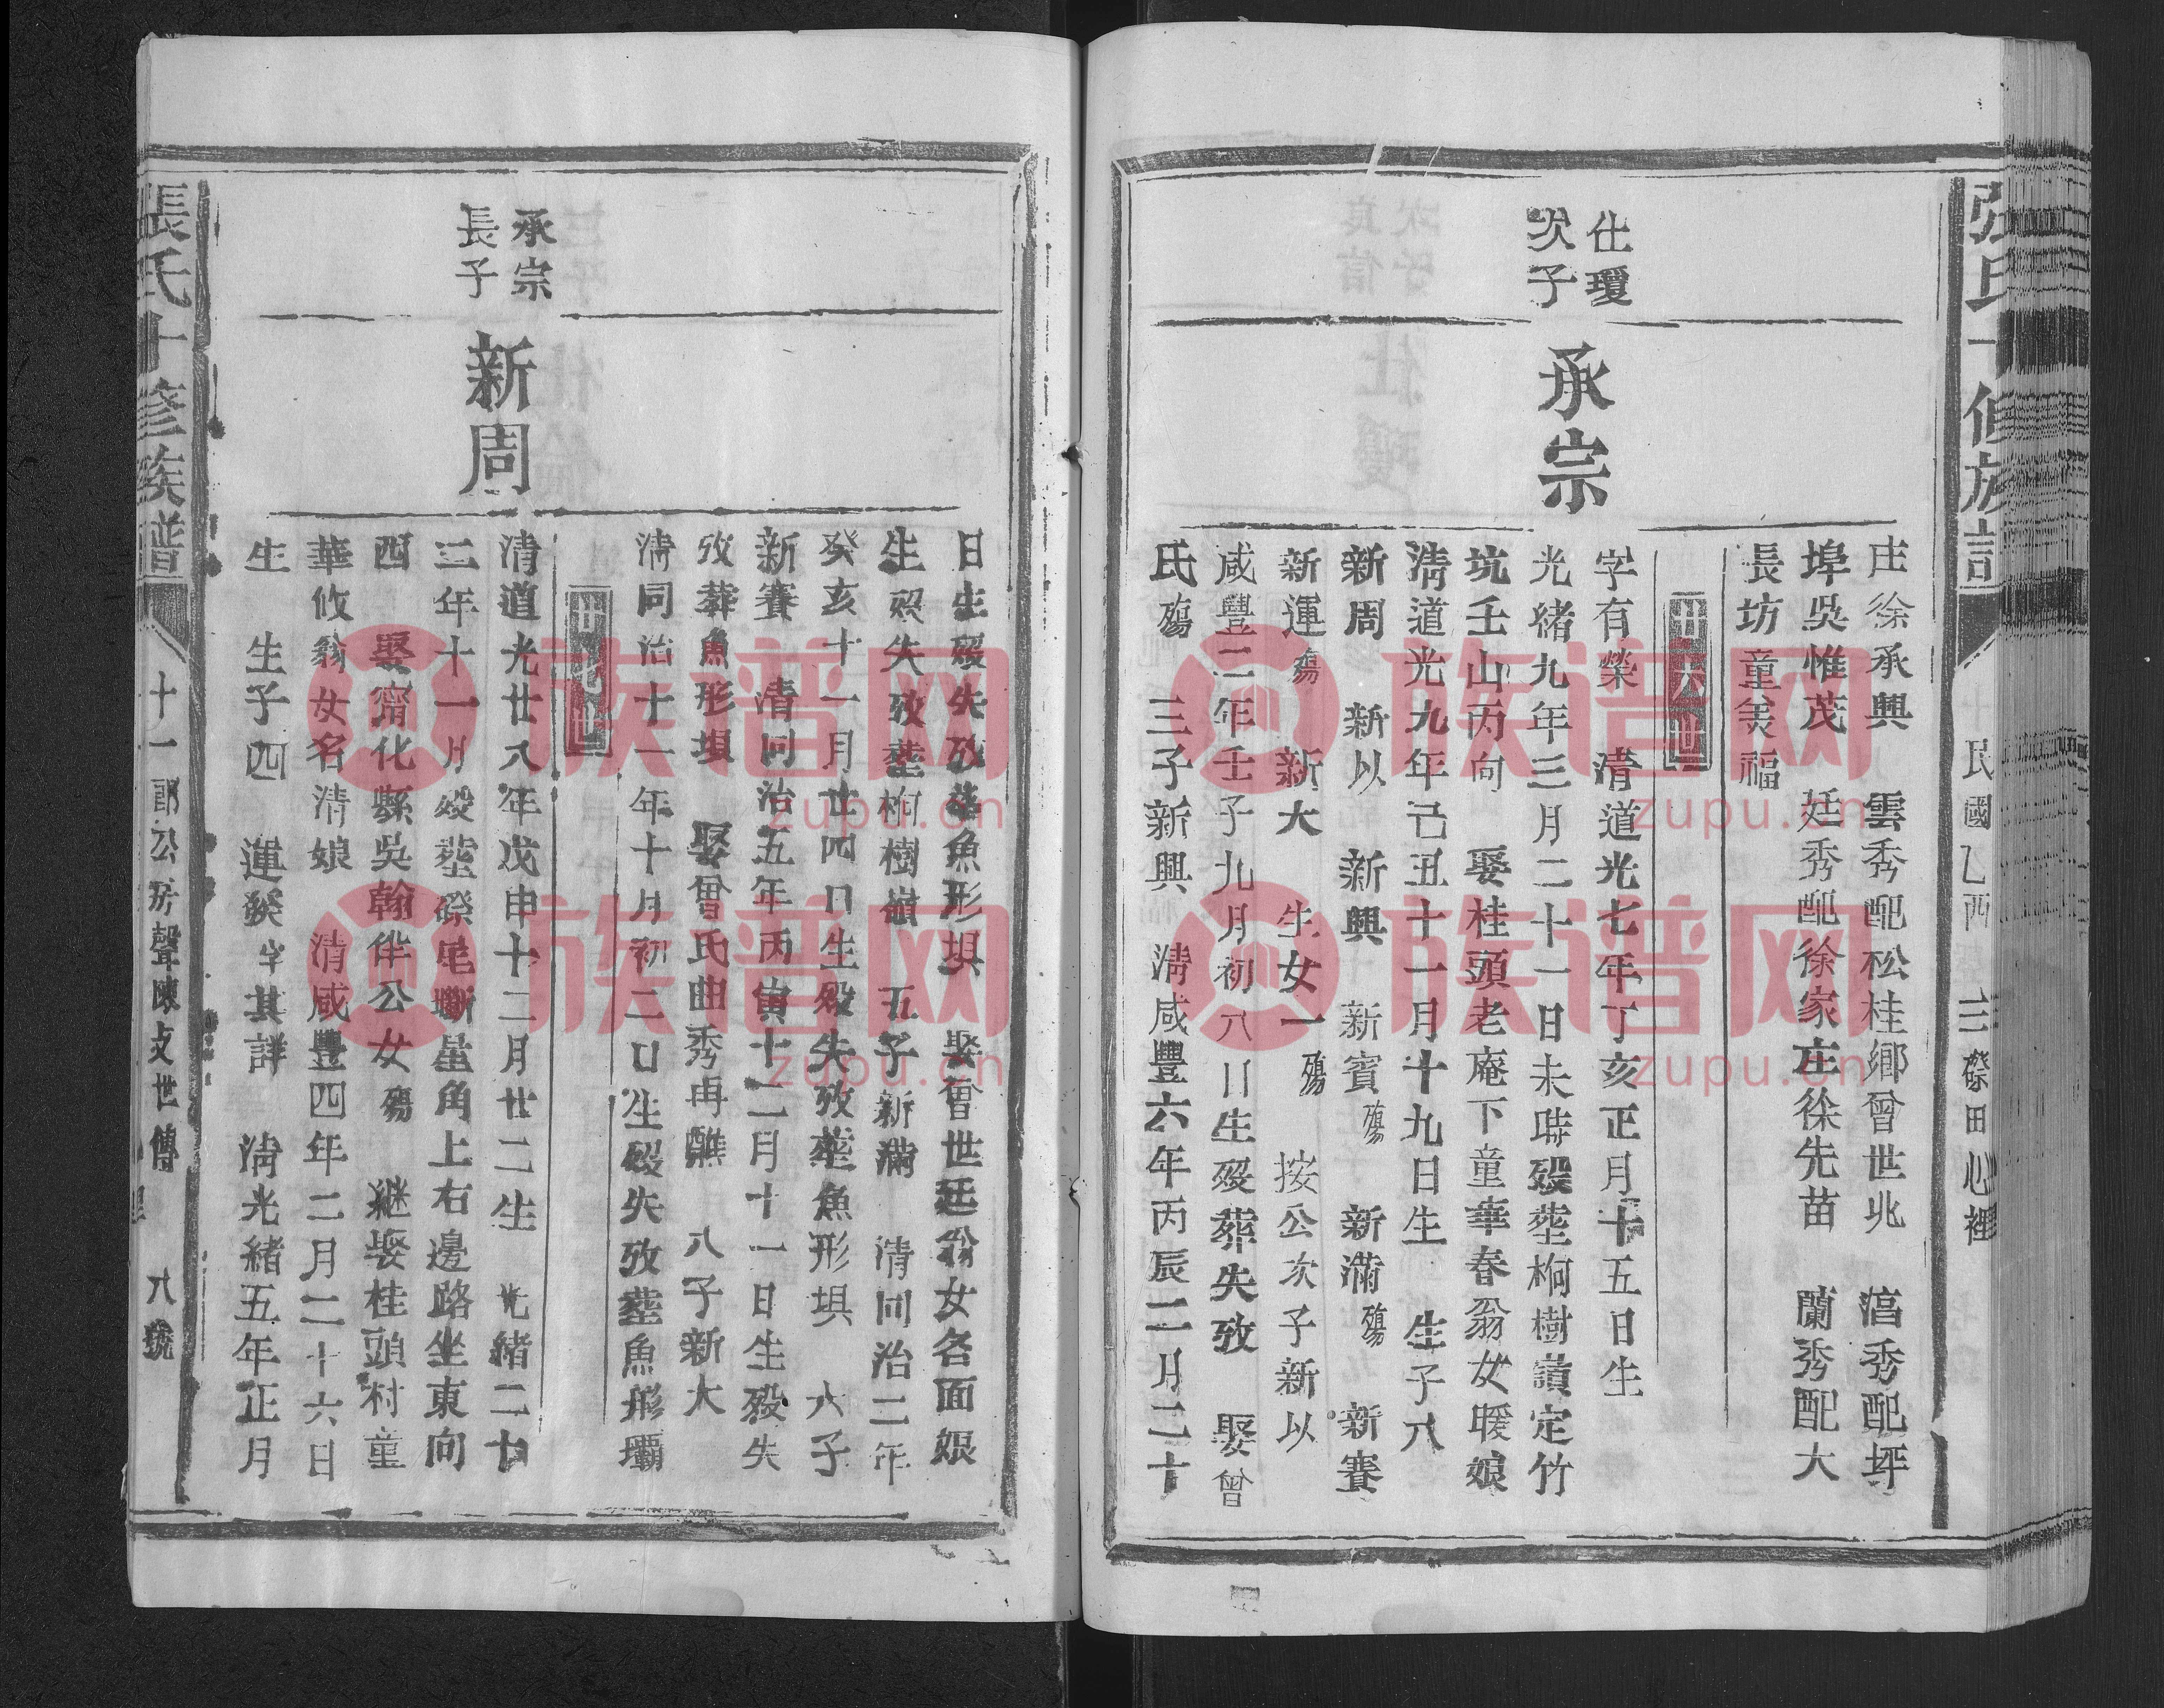 民國乙酉
三磜田心裡
庄徐承興　雲秀配松桂鄉曾世兆　滛秀配坪
埠吳惟茂　廷秀配徐家庄徐先苗　蘭秀配大
長坊童美福
卅六世
仕瓊
次子
承宗
字有榮　清道光七年丁亥正月十五日生
光緒九年三月二十一日未時殁塟桐樹讀定竹
坑壬山丙向　娶桂頭老庵下童華春翁女暖娘
清道光九年己丑十一月十九日生　生子八
新周　新以　新興　新賓殤　新滿殤　新賽
新運殤　新大　生女一殤　按公次子新以
咸豐二年壬子九月初八日生殁葬失攷　娶曾
氏殤　三子新興　清咸豐六年丙辰二月二十
日生殁失攷塟魚形垻　娶曾世廷翁女名面娘
生殁失攷塟桐樹嶺　五子新滿　清同治二年
癸亥十一月廿四日生殁失攷塟魚形垻　六子
新賽　清同治五年丙寅十二月十一日生殁失
攷葬魚形垻　娶曾氏曲秀再醮　八子新大
清同治十一年十月初二日生殁失攷塟魚形壩
卅七世
承宗
長子
新周
清道光廿八年戊申十二月廿二生　光緒二十
三年十一月殁塟磜尾墈星角上右邊路坐東向
西　娶寧化縣吳翰伴公女殤　継娶桂頭村童
華攸翁女名清娘　清咸豐四年二月二十六日
生　生子四　運發　其詳　清光緒五年正月
張氏十修族譜
十一郎公房聲陳支世傳
八號